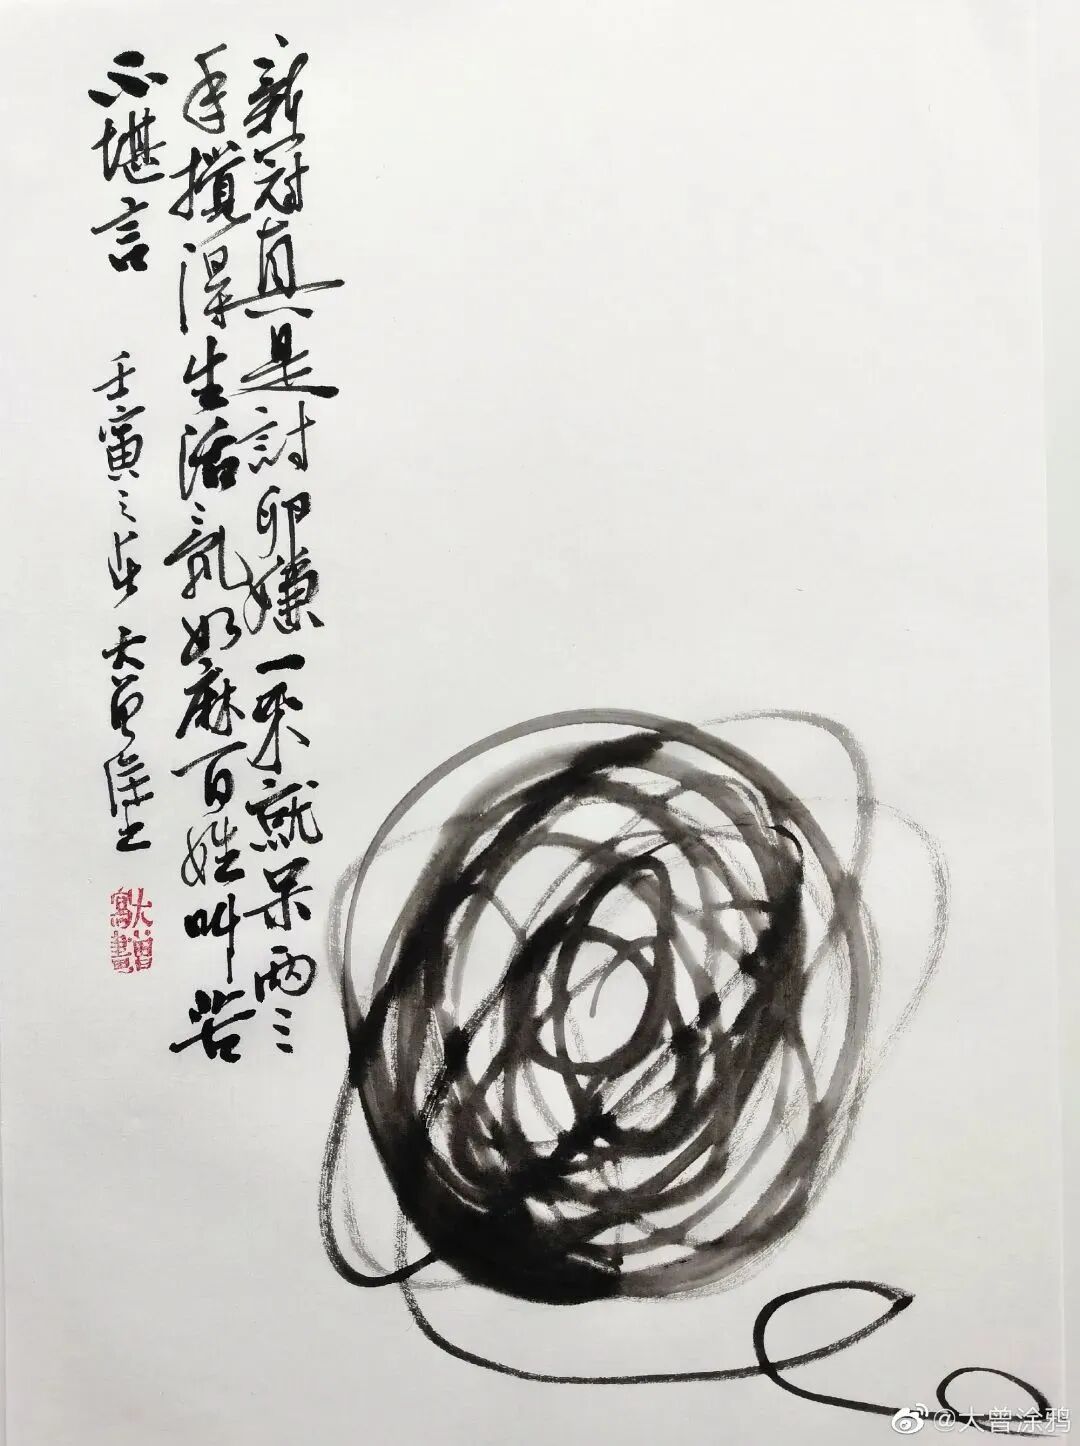 新冠真是討卵嫌一来就呆兩三
年攪得生活乱如麻百姓叫苦
不堪言
壬寅之 大曾
大曾寫畫
@大曾涂鸦